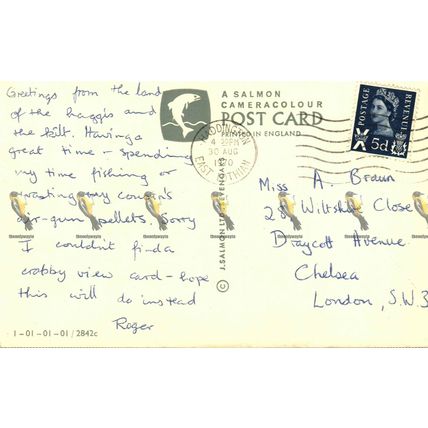 Greetings from the land
of the haggis and
the kilt. Having a
great time – spending
my time fishing or
wasting my cousin's
air-gun pellets. Sorry
I couldn't find a
crabby view card – hope
this will do instead
Roger
1-01-01-01/2842c
A SALMON
CAMERACOLOUR
POST CARD
PRINTED IN ENGLAND
© J. SALMON LTD. SEVENOAKS
HADDINGTON
4 - PM
30 AUG
1970
EAST LOTHIAN
POSTAGE
REVENUE
5d
Miss A. Braun
28 Wiltshire Close
Draycott Avenue
Chelsea
London, S.W.3